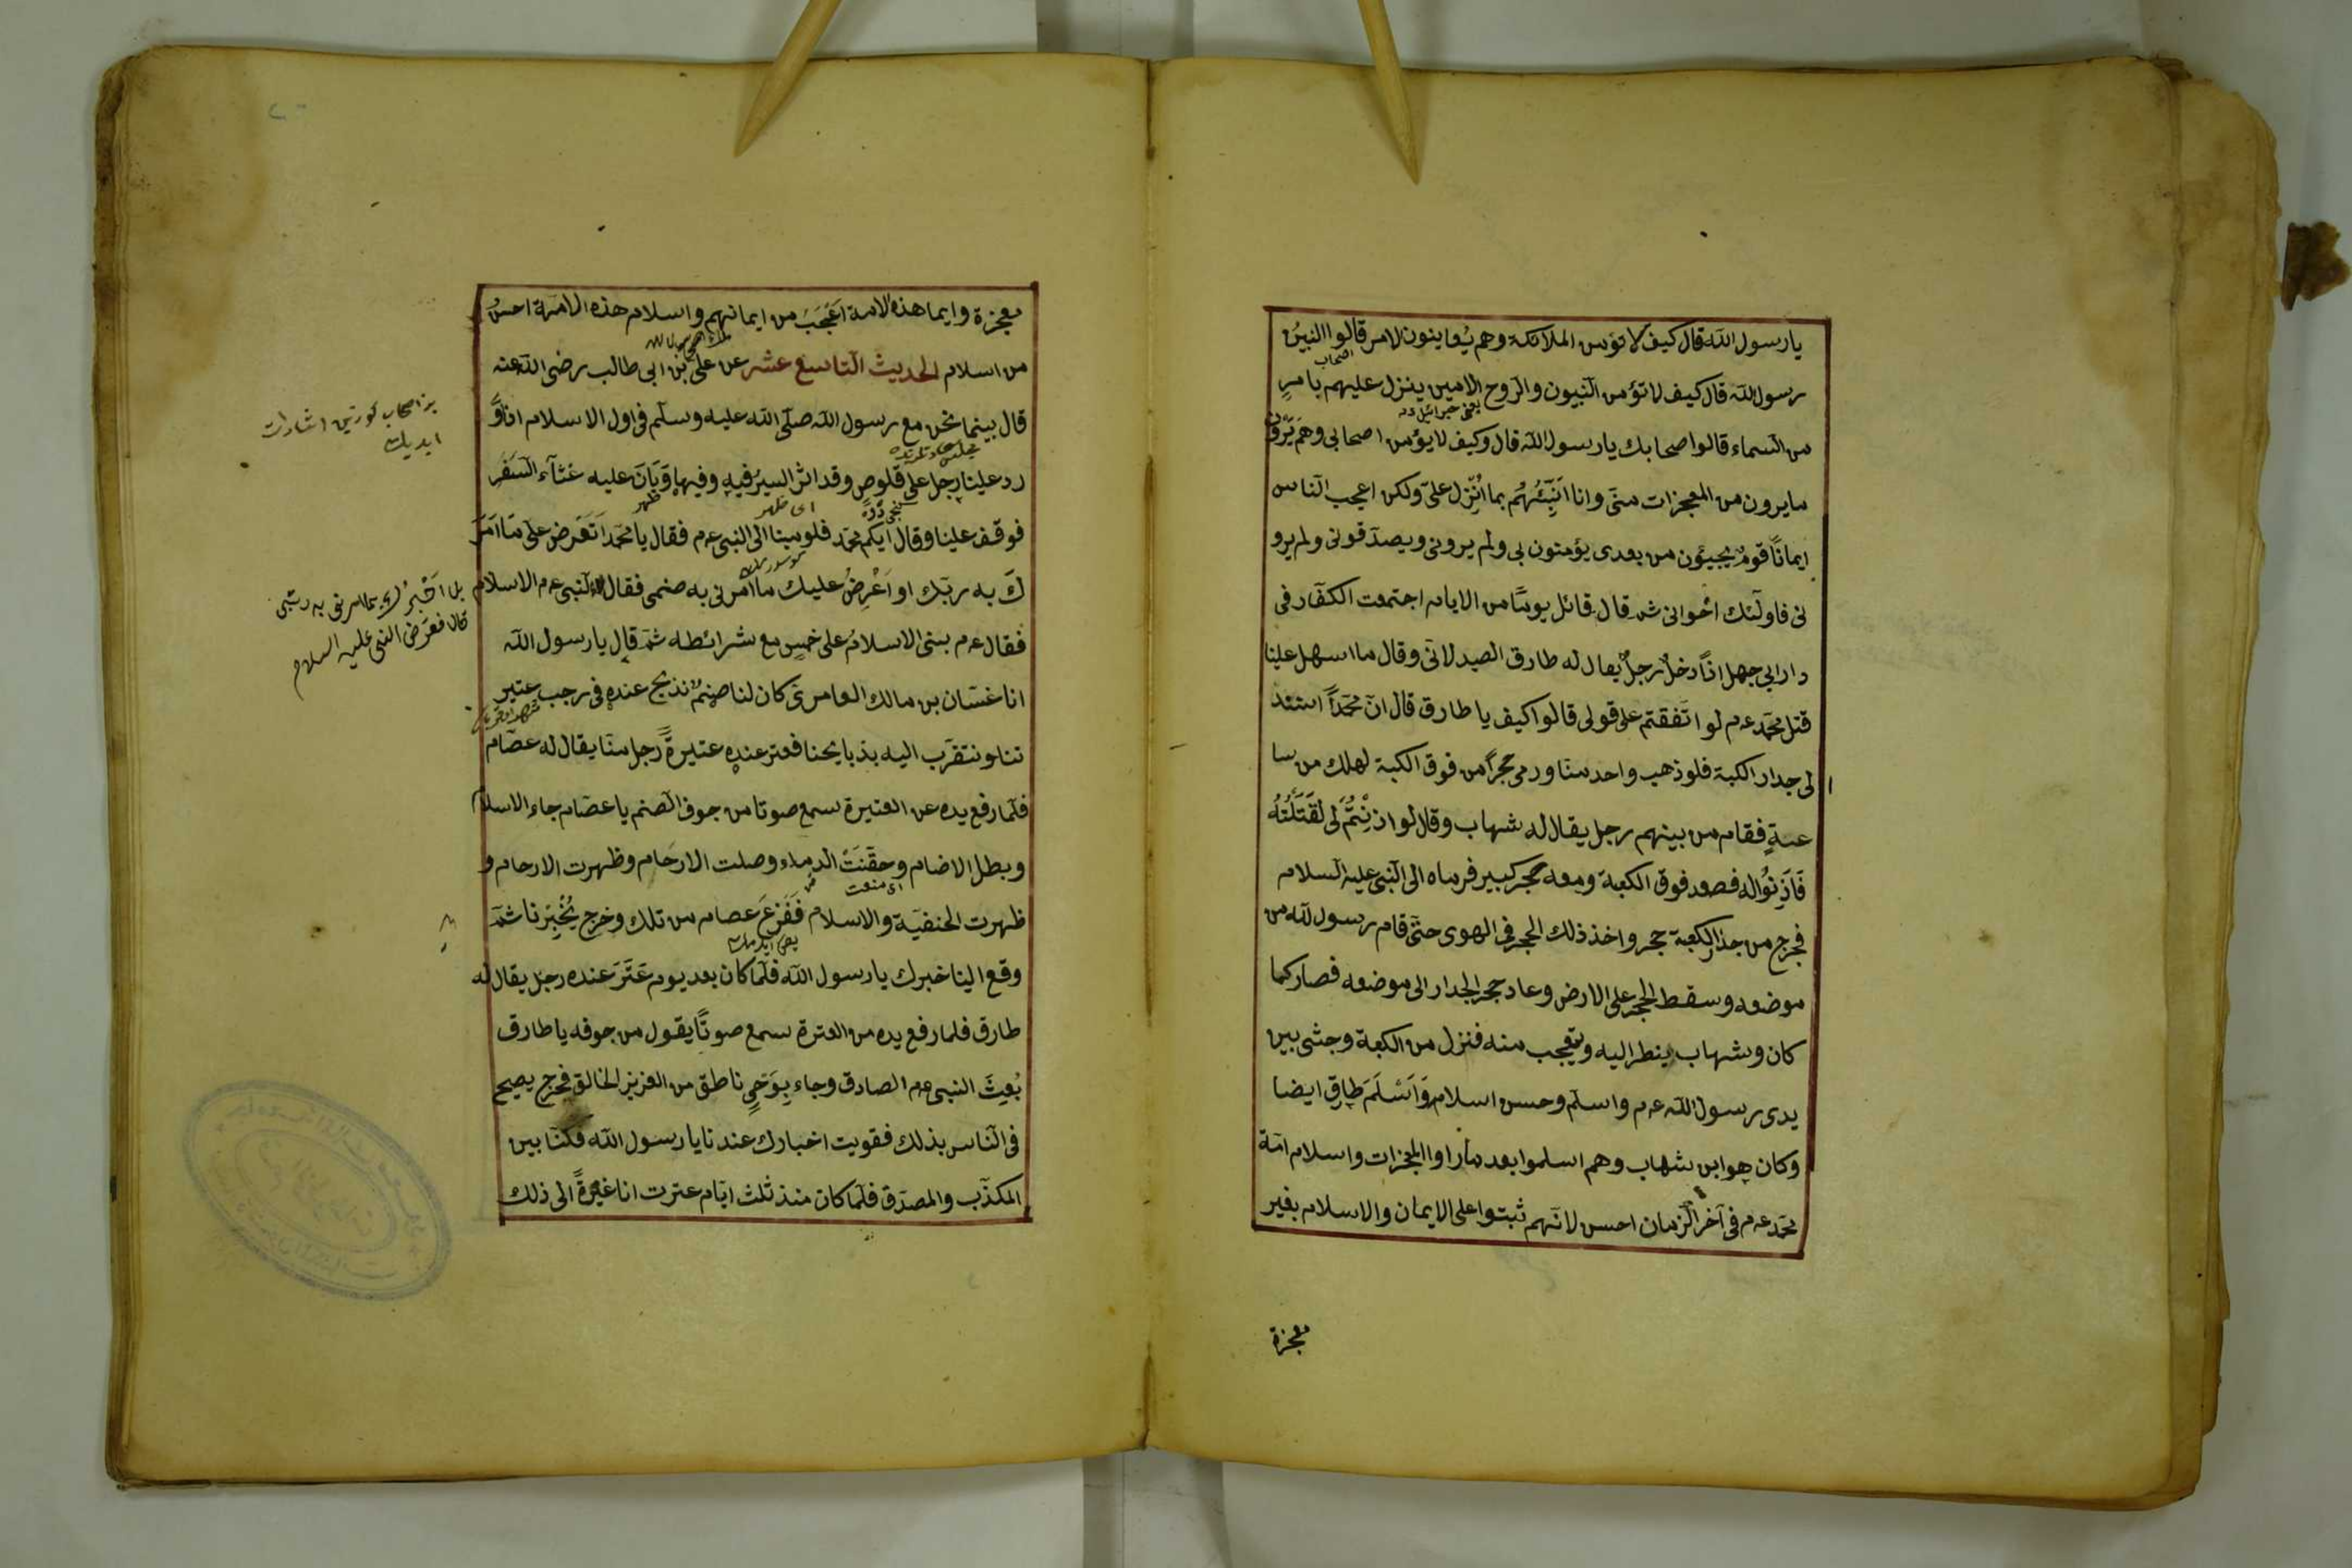 يا رسول الله قال كيف لا تؤمن الملائكة وهم يُعاينون الامر قالوا النبيّن
رسول الله قال كيف لا تؤمن النبيون والروح الامين ينزل عليهم بامرٍ
اصحاب
يعنى جبرائيل
من السماء قالوا اصحابك يا رسول الله قال وكيف لا يؤمن اصحابى وهم يَرَوْنَ
ما يرون من المعجزات منّى وانا اُنَبِّئُهُم بما اُنْزِل علىّ ولكن اعجب الناس
ايماناً قومٌ يجيئون من بعدى يؤمنون بى ولم يرونى ويصدّقونى ولم يرو
نى فاولئك اخوانى ثم قال قائل يومًا من الايام اجتمعت الكفّار فى
دار ابى جهل اذاً دخل رجلٌ يقال له طارق الصيدلانى وقال ما اسهل علينا
قتل محمّد عم لو اتّفقتم على قولى قالوا كيف يا طارق قال انّ محمّداً استند
لى جدار الكبة فلو ذهب واحد منّا ورمى حجراً من فوق الكبة لهلك من سا
عةٍ فقام من بينهم رجل يقال له شهاب وقال لو اذِنْتُمْ لى لقَتَلْتُهُ
فَاَذِنُوا له فصعد فوق الكعبة ومعه حجر كبير فرماه الى النبى عليه السلام
فخرج من جدار الكعبة حجر واخذ ذلك الحجر فى الهوى حتّى قام رسول الله من
موضعه وسقط الحجر على الارض وعاد حجر الجدار الى موضعه فصار كما
كان وشهاب ينظر اليه ويتعجب منه فنزل من الكعبة وجثى بين
يدى رسول الله عم واسلم وحسن اسلام وَاَسْلَمَ طارق ايضا
وكان هو ابن شهاب وهم اسلموا بعد ما راوا المعجزات واسلام امّة
محمّد عم فى آخر الزمان احسن لانّهم ثبتوا على الايمان والاسلام بغير
معجزة
معجزة وايما هذه الامة اَعْجَبَ من ايمانهم واسلام هذه الامّة احسن
من اسلام الحديث التاسع عشر عن على بن ابى طالب رضى الله عنه
قال بينما نحن مع رسول الله صلّى الله عليه وسلّم فى اول الاسلام اذ وَ
رد علينا رجل على قلوصٍ وقد اثر السير فيه وفيها وَبَانَ عليه غثآء السَفَر
اى ظهر
ظهر
فوقف علينا وقال ايّكم محمّد فاومينا الى النبى عم فقال يا محمّد اَتَعَرض علىّ مَا اَمَرَ
كَ به ربّك او اَعْرِضُ عليك ما امرنى به صنمى فقال النبى عم الاسلام
بل اَخْبِرْ لى بما امرنى به ربّى
قال فعرَض النبى عليه السلام
فقال عم بنى الاسلام على خمسٍ مع شرائطه ثمّ قال يا رسول الله
انا غسّان بن مالك العامرى كان لنا صنمٌ نذبح عنده فى رجب عتير
تنا ونتقرّب اليه بذبايحنا فعتر عنده عتيرةً رجل منّا يقال له عصّام
فلمّا رفع يده عن العتيرة سمع صوتا من جوف الصنم يا عصّام جاء الاسلام
وبطل الاصنام وحقّنَتْ الدماء وصلت الارحام وظهرت الارحام و
اى منعت
ظهرت الحنفيّة والاسلام فَفَزِعَ عصام من تلك وخرج يُخْبِرُنا ثمّ
وقع الينا خبرك يا رسول الله فلمّا كان بعد يوم عَتَرَ عنده رجل يقال له
طارق فلما رفع يده من العترة سمع صوتًا يقول من جوفه يا طارق
بُعِثَ النبى عم الصادق وجاء بِوَحْىٍ ناطق من العزيز الخالق فخرج يصيح
فى الناس بذلك فقويت اخبارك عندنا يا رسول الله فكنّا بين
المكذّب والمصدّق فلمّا كان منذ ثلث ايّام عترت انا عتيرةً الى ذلك